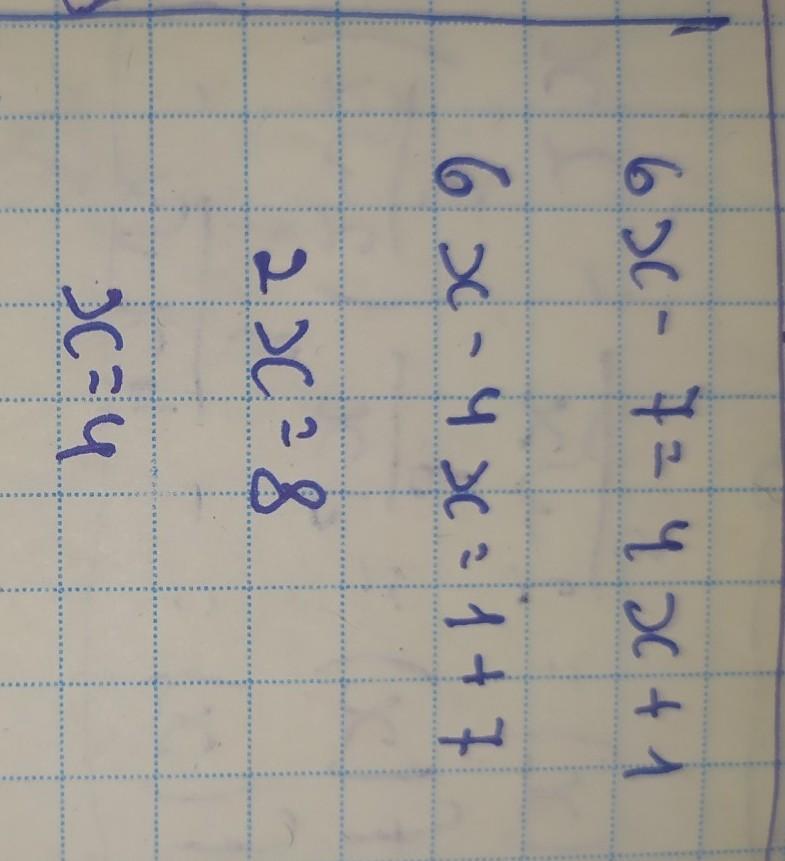 6x - 7 = 4x + 1
6x - 4x = 1 + 7
2x = 8
x = 4